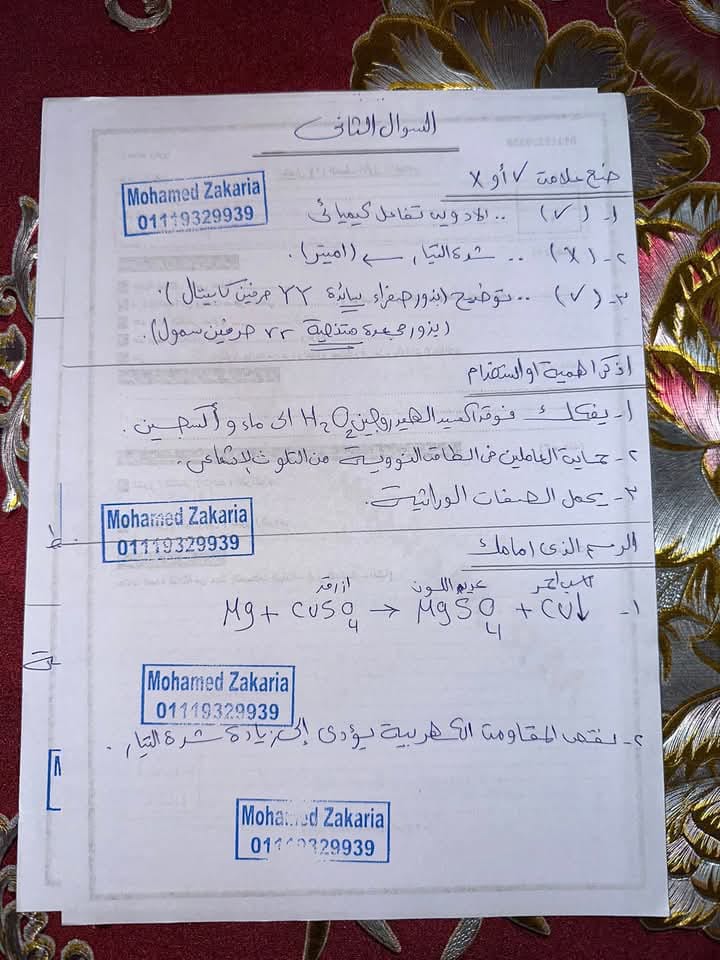 السوال الثانى
ضع علامت ✓ أو X
Mohamed Zakaria
01119329939
١- (✓) .. الادوين تفاعل كيميائى
٢- (X) .. شدة التيار ← (اميتر).
٣- (✓) .. توضيح (بذور صفراء بسائدة YY حرفين كابيتال).
(بذور مجعدة متنحية rr حرفين سمول).
اذكر اهمية او استخدام
١- يفكك فوقد اكسيد الهيدروجين H2O2 الى ماء و أكسجين.
٢- حماية العاملين فى الطاقة النووية من التلوث الإشعاعى.
٣- يحمل الصفات الوراثية.
Mohamed Zakaria
01119329939
الرسم الذى امامك
ازرق عديم اللون راسب احمر
١- Mg + CuSO4 → MgSO4 + Cu↓
Mohamed Zakaria
01119329939
٢- نقص المقاومة الكهربية يؤدى إلى زيادة شدة التيار.
Mohamed Zakaria
01119329939